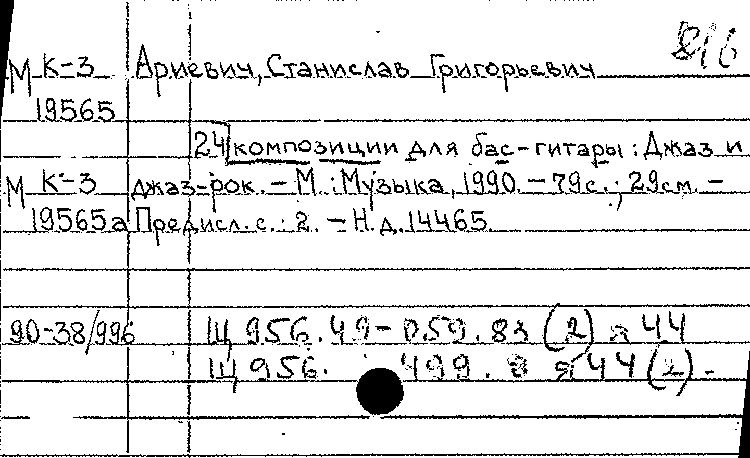 816
М К-3 Ариевич, Станислав Григорьевич
19565
24 композиции для бас-гитары : Джаз и
М К-3 джаз-рок. – М. : Музыка, 1990. – 79 с. ; 29 см. –
19565а Предисл. с. : 2. – Н. д. 14465.
90-38/996 Щ 956.49-059.83 (2) я 44
Щ 956. 499.8 я 44 (2) -